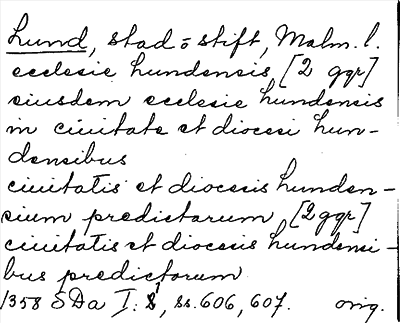 Lund, stad o stift, Malm. l.
ecclesie Lundensis, [2 ggr]
eiusdem ecclesie Lundensis
in ciuitate et diocesi Lun-
densibus
ciuitatis et diocesis Lunden-
sium predictarum [2 ggr]
ciuitatis et diocesis Lundensi-
bus predictorum
1358 SDa I:1, ss. 606, 607. orig.